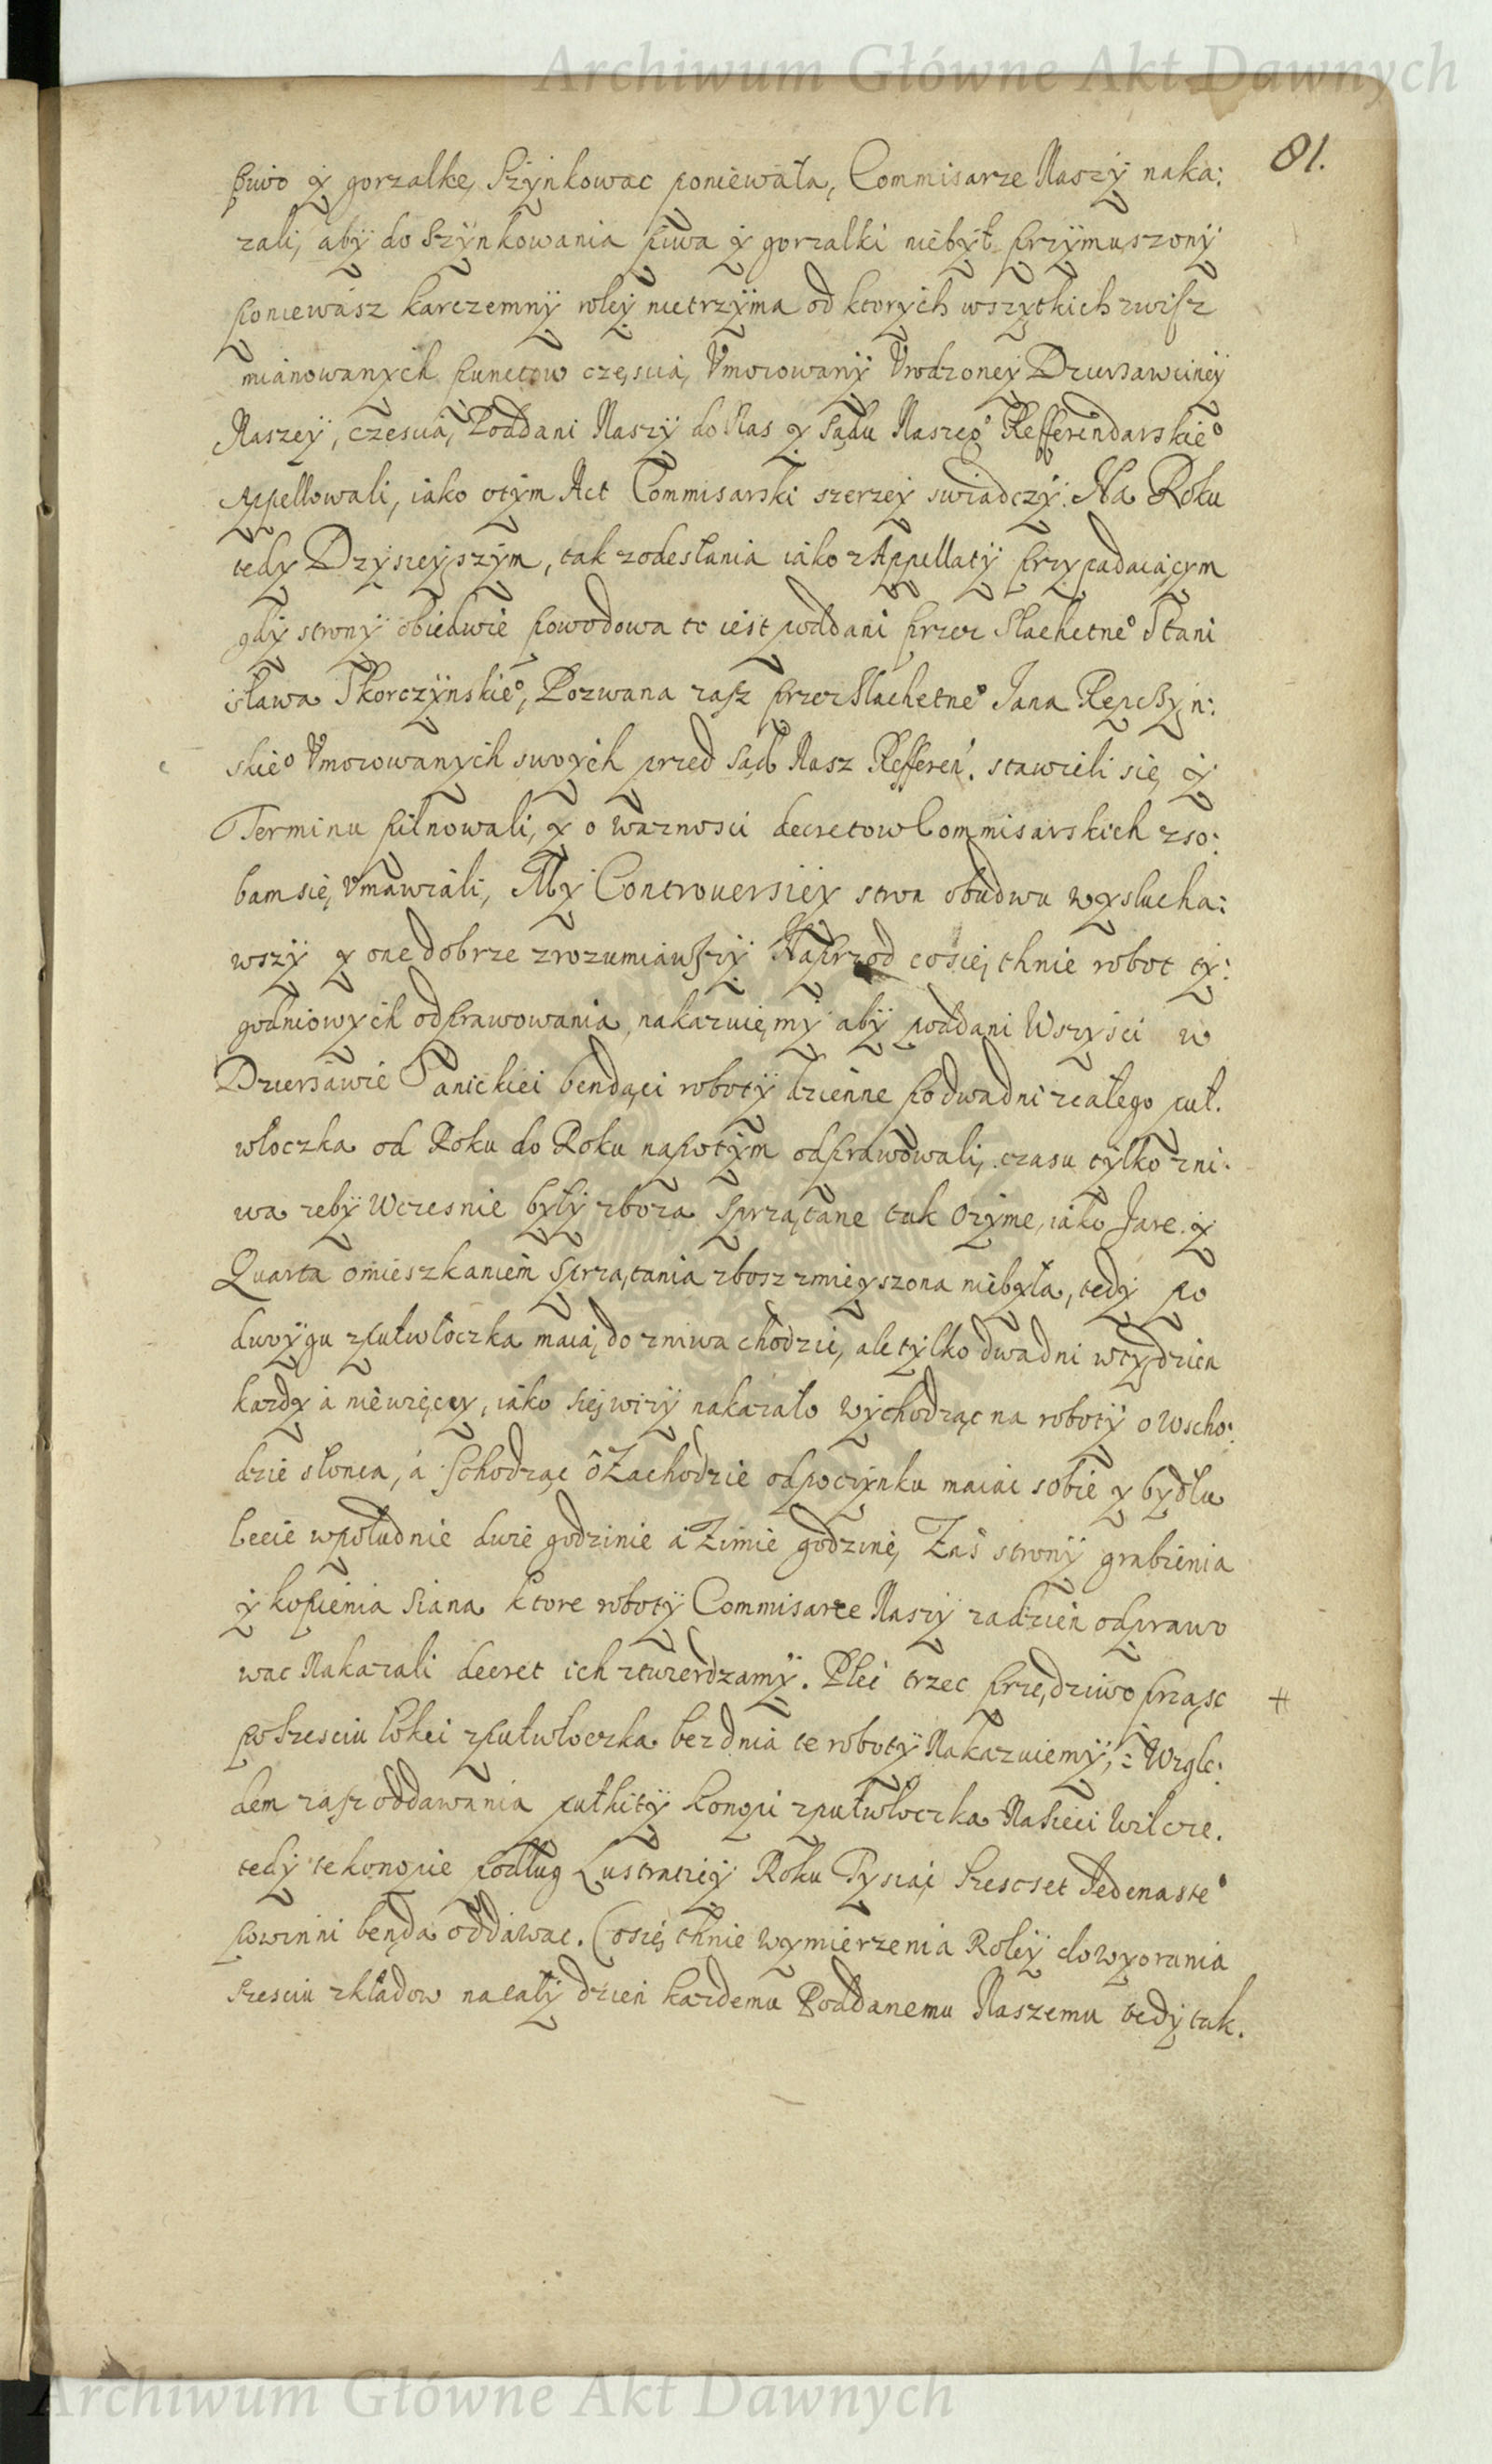 Archiwum Główne Akt Dawnych
81.
piwo y gorzalkę, Szynkowac poniewała, Commisarze Naszy naka:
zali, aby do Szynkowania piwa y gorzalki niebył przymuszony
poniewasz karczemny roley nietrzyma od ktorych wszytkich zwisz
mianowanych punctow częscią, Vmocowany Vrodzoney Dziersawciney
Naszey, częscią, Poddani Naszy do Nas y Sądu Naszeg° Refferendarskie°
Appellowali, iako otym Act Commisarski szerzey swiadczy. Na Roku
tedy Dzyszeyszym, tak zodesłania iako z Appellaty przypadaiącym
gdy strony obiedwie powodowa to iest poddani przez Slachetne° Stani
sława Skorczynskie°, Pozwana zasz przez Slachetne° Jana Repczyn:
skie° Vmocowanych swoych przed sąd Nasz Refferen. stawieli się y
Terminu pilnowali, y o waznosci decretow Commisarskich zso:
bam się, Vmawiali, My Controuersiey stron obudwu wyslucha:
wszy y one dobrze zrozumiawszy Naprzod cosię, tknie robot ty:
godniowych odprawowania, nakazuięmy aby poddani Wszysci w
Dziersawie Sanickiei bendąci roboty dzienne po dwa dni zcałego puł.
włoczka od Roku do Roku napotym odprawowali, czasu tylko zni.
wa zeby Wczesnie były zboza sprzątane tak Ozyme, iako Jare. y
Quarta omieszkaniem sprzątania zbosz zmieyszona niebyła, tedy po
dwoygu zpułwłoczka maią, do zniwa chodzic, ale tylko dwa dni wtydzien
kazdy a niewięcey, iako się wizy nakazało wychodząc na roboty o wscho:
dzie słonca, a schodząc o Zachodzie odpoczynku maiac sobie y bydłu
lecie wpołudnie dwie godzinie a Zimie godzinę, Zas strony grabienia
y kopienia siana ktore roboty Commisarze Naszy zadzien odprawo
wac Nakazali decret ich ztwierdzamy. Plec trzec przędziwo prząsc #
po szesciu łokci zpułwłoczka bez dnia te roboty Nakazuiemy, : Wzglę:
dem zasz oddawania pułkity konopi zpułwłoczka Nasieci wilcze.
tedy te konopie podług Lustraciey Roku Tysiąc Szescset Jedenaste°
powinni bendą oddawac. Co się tknie wymierzenia Roley dowyorania
szesciu zkładow nacały dzien kazdemu Poddanemu Naszemu tedy tak.
Archiwum Główne Akt Dawnych